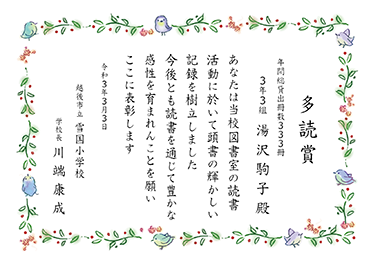 多読賞
年間総貸出冊数333冊
3年3組 湯沢駒子殿
あなたは当校図書室の読書
活動に於いて頭書の輝かしい
記録を樹立しました
今後とも読書を通じて豊かな
感性を育まれんことを願い
ここに表彰します
令和3年3月3日
越後市立 雪国小学校
学校長 川端康成